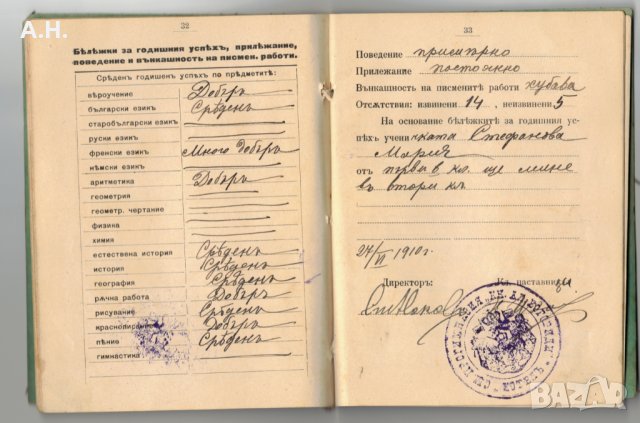 А.Н.
32
Бѣлѣжки за годишния успѣхъ, прилѣжание,
поведение и вънкашность на писмен. работи.
Срѣденъ годишенъ успѣхъ по прѣдметитѣ:
вѣроучение Добъръ
български езикъ Срѣденъ
старобългарски езикъ
руски езикъ
френски езикъ Много добъръ
нѣмски езикъ
аритметика Добъръ
геометрия
геометр. чертание
физика
химия
естествена история Срѣденъ
история Срѣденъ
география Срѣденъ
рѫчна работа Добъръ
рисувание Срѣденъ
краснописание Добъръ
пѣние Срѣденъ
гимнастика
33
Поведение примѣрно
Прилежание постоянно
Вънкашность на писменитѣ работи хубава
Отсѫтствия: извинени 14, неизвинени 5
На основание бѣлѣжкитѣ за годишния ус-
пѣхъ ученичката Стефанова
Мария
отъ първи в кл. ще мине
въ втори кл.
24/VI 1910 г.
Директоръ: Кл. наставникъ
BAZAR